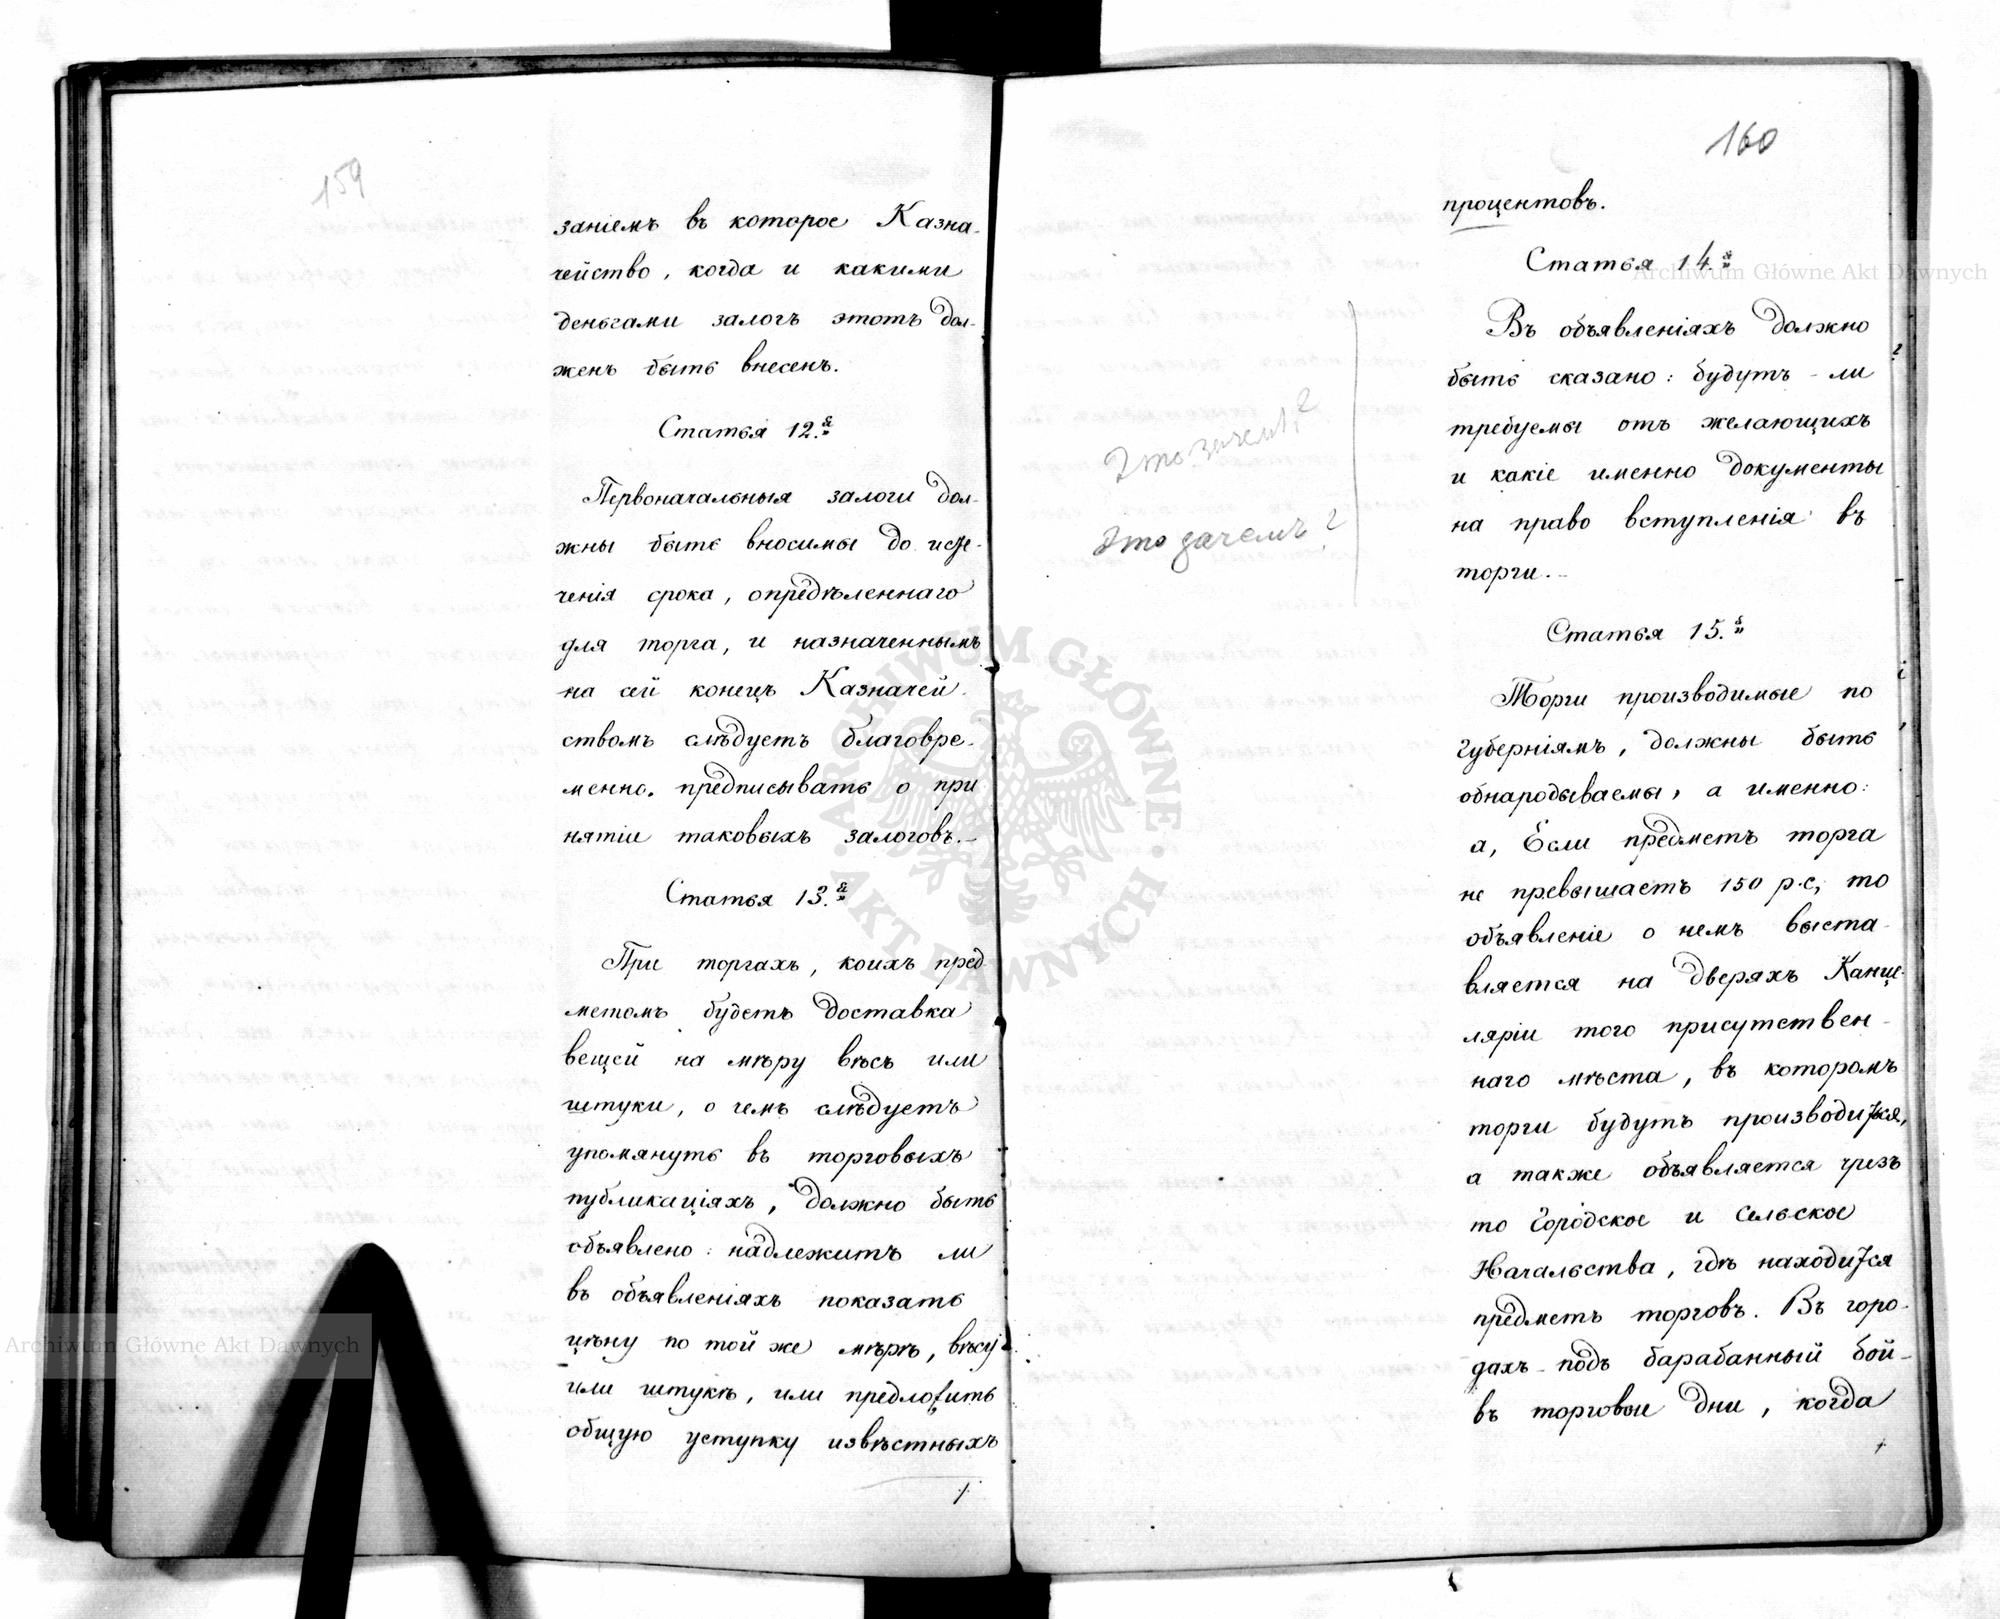 159
заніемъ въ которое Казна-
чейство, когда и какими
деньгами залогъ этотъ дол-
женъ быть внесенъ.
Статья 12.я
Первоначальныя залоги дол-
жны быть вносимы до исте-
ченія срока, опредѣленнаго
для торга, и назначеннымъ
на сей конецъ Казначей-
ствомъ слѣдуетъ благовре-
менно предписывать о при
нятіи таковыхъ залоговъ.-
Статья 13.я
При торгахъ, коихъ пред-
метомъ будетъ доставка
вещей на мѣру вѣсъ или
штуки, о чемъ слѣдуетъ
упомянуть въ торговыхъ
публикаціяхъ, должно быть
объявлено: надлежитъ ли
въ объявленіяхъ показать
цѣну по той же мѣрѣ, вѣсу
или штукѣ, или предложить
общую уступку извѣстныхъ
160
процентовъ.
Статья 14.я
Въ объявленіяхъ должно
быть сказано: будутъ-ли
требуемы отъ желающихъ
и какіе именно документы
на право вступленія въ
торги.-
Это зачемъ?
Это зачемъ?
Статья 15.я
Торги производимые по
Губерніямъ, должны быть
обнародываемы, а именно:
а, Если предметъ торга
не превышаетъ 150 р.с, то
объявленіе о немъ выста-
вляется на дверяхъ Канце-
ляріи того присутствен-
наго мѣста, въ которомъ
торги будутъ производиться,
а также объявляется чрезъ
то Городское и Сельское
Начальства, гдѣ находится
предметъ торговъ. Въ горо-
дахъ-подъ барабанный бой-
въ торговые дни, когда
Archiwum Główne Akt Dawnych
Archiwum Główne Akt Dawnych
ARCHIWUM GŁÓWNE · AKT DAWNYCH ·